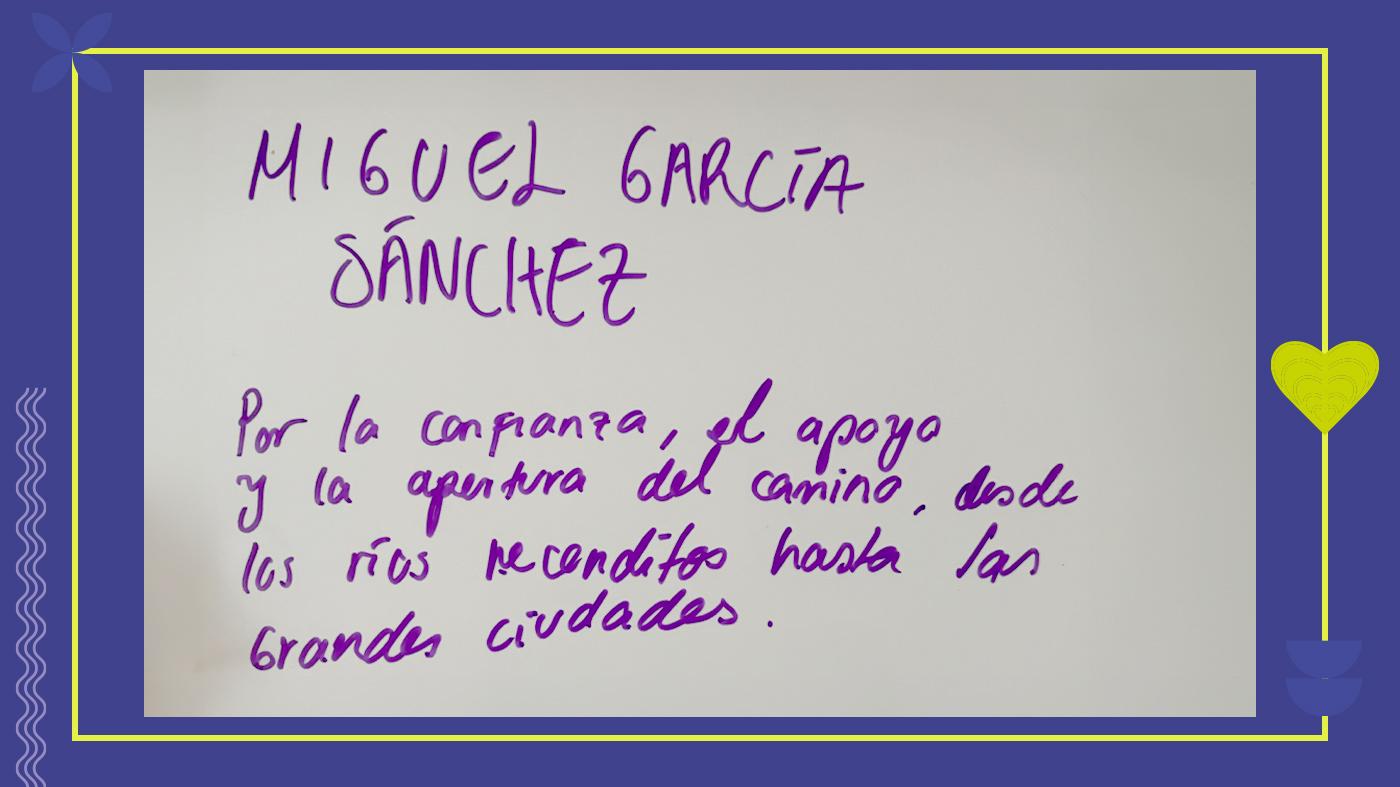 MIGUEL GARCÍA
SÁNCHEZ
Por la confianza, el apoyo
y la apertura del camino, desde
los ríos recenditos hasta las
Grandes ciudades.